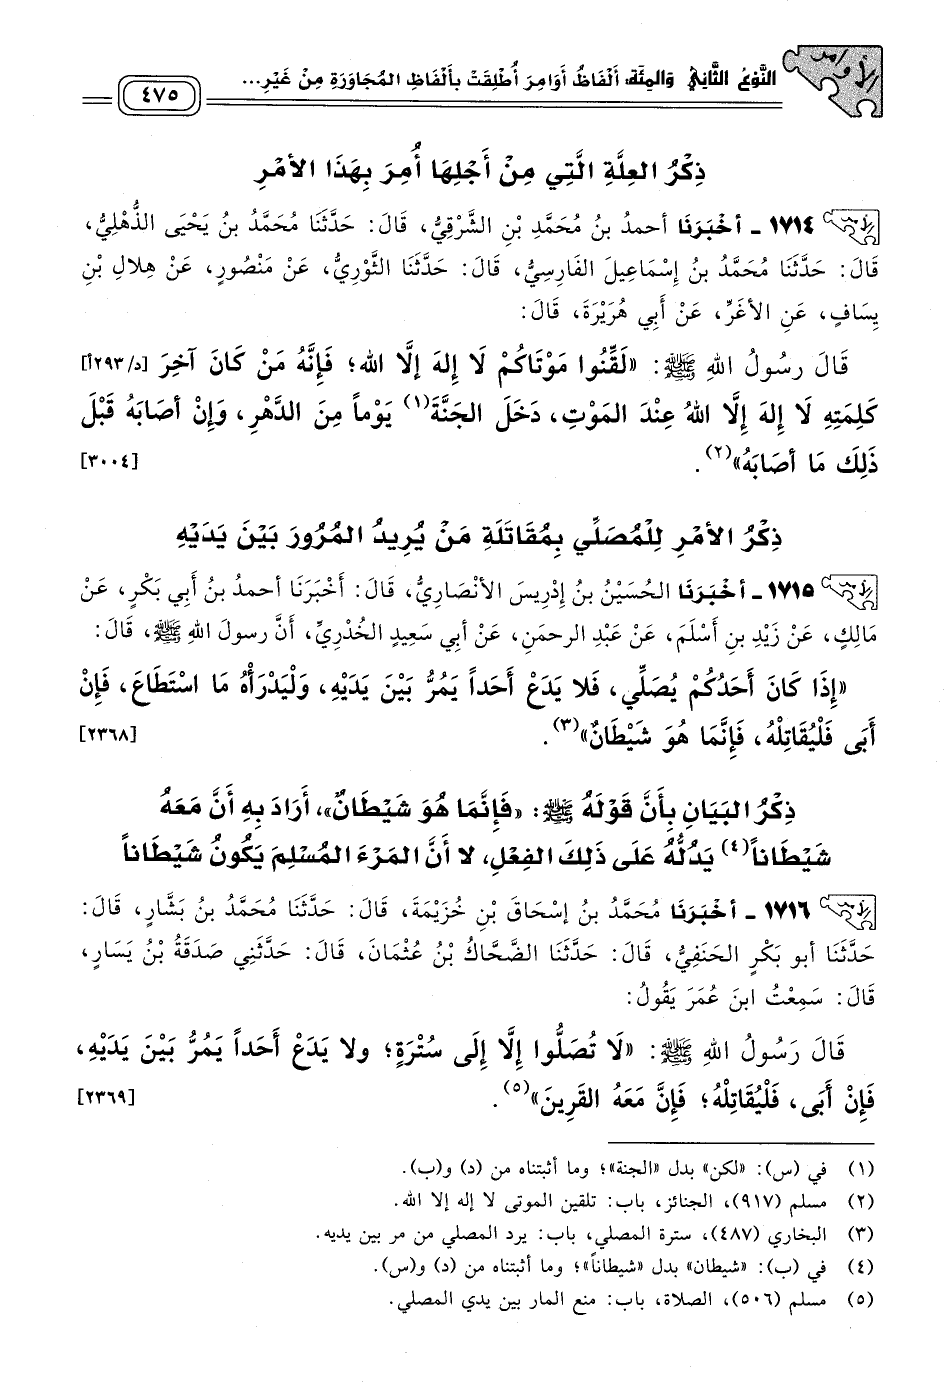 الأوامر
النَّوْعُ الثَّانِي وَالمِئَة: أَلْفَاظُ أَوَامِرَ أُطْلِقَتْ بِأَلْفَاظِ المُجَاوَرَةِ مِنْ غَيْرِ...
٤٧٥
ذِكْرُ العِلَّةِ الَّتِي مِنْ أَجْلِهَا أُمِرَ بِهَذَا الأَمْرِ
١٧١٤ - أَخْبَرَنَا أحمدُ بنُ مُحَمَّدِ بْنِ الشَّرْقِيُّ، قَالَ: حَدَّثَنَا مُحَمَّدُ بنُ يَحْيَى الذُّهْلِيُّ،
قَالَ: حَدَّثَنَا مُحَمَّدُ بنُ إِسْمَاعِيلَ الفَارِسِيُّ، قَالَ: حَدَّثَنَا الثَّوْرِيُّ، عَنْ مَنْصُورٍ، عَنْ هِلالِ بْنِ
يِسَافٍ، عَنِ الأَغَرِّ، عَنْ أَبِي هُرَيْرَةَ، قَالَ:
قَالَ رَسُولُ اللهِ ﷺ: «لَقِّنُوا مَوْتَاكُمْ لَا إِلهَ إلَّا الله؛ فَإِنَّهُ مَنْ كَانَ آخِرَ [د/٢٩٣أ]
كَلِمَتِهِ لَا إِلهَ إِلَّا اللهُ عِنْدَ المَوْتِ، دَخَلَ الجَنَّةَ(١) يَوْماً مِنَ الدَّهْرِ، وَإِنْ أصَابَهُ قَبْلَ
ذَلِكَ مَا أصَابَهُ»(٢). [٣٠٠٤]
ذِكْرُ الأَمْرِ لِلْمُصَلِّي بِمُقَاتَلَةِ مَنْ يُرِيدُ المُرُورَ بَيْنَ يَدَيْهِ
١٧١٥ - أَخْبَرَنَا الحُسَيْنُ بنُ إِدْرِيسَ الأنْصَارِيُّ، قَالَ: أَخْبَرَنَا أحمدُ بنُ أَبِي بَكْرٍ، عَنْ
مَالِكٍ، عَنْ زَيْدِ بنِ أَسْلَمَ، عَنْ عَبْدِ الرحمَنِ، عَنْ أبي سَعِيدٍ الخُدْرِيِّ، أَنَّ رسولَ اللهِ ﷺ، قَالَ:
«إِذَا كَانَ أَحَدُكُمْ يُصَلِّي، فَلا يَدَعْ أَحَداً يَمُرُّ بَيْنَ يَدَيْهِ، وَلْيَدْرَأْهُ مَا اسْتَطَاعَ، فَإِنْ
أَبَى فَلْيُقَاتِلْهُ، فَإِنَّمَا هُوَ شَيْطَانٌ»(٣). [٢٣٦٨]
ذِكْرُ البَيَانِ بِأَنَّ قَوْلَهُ ﷺ: «فَإِنَّمَا هُوَ شَيْطَانٌ»، أَرَادَ بِهِ أَنَّ مَعَهُ
شَيْطَاناً(٤) يَدُلُّهُ عَلَى ذَلِكَ الفِعْلِ، لا أَنَّ المَرْءَ المُسْلِمَ يَكُونُ شَيْطَاناً
١٧١٦ - أَخْبَرَنَا مُحَمَّدُ بنُ إِسْحَاقَ بْنِ خُزَيْمَةَ، قَالَ: حَدَّثَنَا مُحَمَّدُ بنُ بَشَّارٍ، قَالَ:
حَدَّثَنَا أبو بَكْرٍ الحَنَفِيُّ، قَالَ: حَدَّثَنَا الضَّحَّاكُ بْنُ عُثْمَانَ، قَالَ: حَدَّثَنِي صَدَقَةُ بْنُ يَسَارٍ،
قَالَ: سَمِعْتُ ابنَ عُمَرَ يَقُولُ:
قَالَ رَسُولُ اللهِ ﷺ: «لَا تُصَلُّوا إِلَّا إِلَى سُتْرَةٍ؛ ولا يَدَعْ أَحَداً يَمُرُّ بَيْنَ يَدَيْهِ،
فَإِنْ أَبَى، فَلْيُقَاتِلْهُ؛ فَإِنَّ مَعَهُ القَرِينَ»(٥). [٢٣٦٩]
(١) في (س): «لكن» بدل «الجنة»؛ وما أثبتناه من (د) و(ب).
(٢) مسلم (٩١٧)، الجنائز، باب: تلقين الموتى لا إله إلا الله.
(٣) البخاري (٤٨٧)، سترة المصلي، باب: يرد المصلي من مر بين يديه.
(٤) في (ب): «شيطان» بدل «شيطاناً»؛ وما أثبتناه من (د) و(س).
(٥) مسلم (٥٠٦)، الصلاة، باب: منع المار بين يدي المصلي.